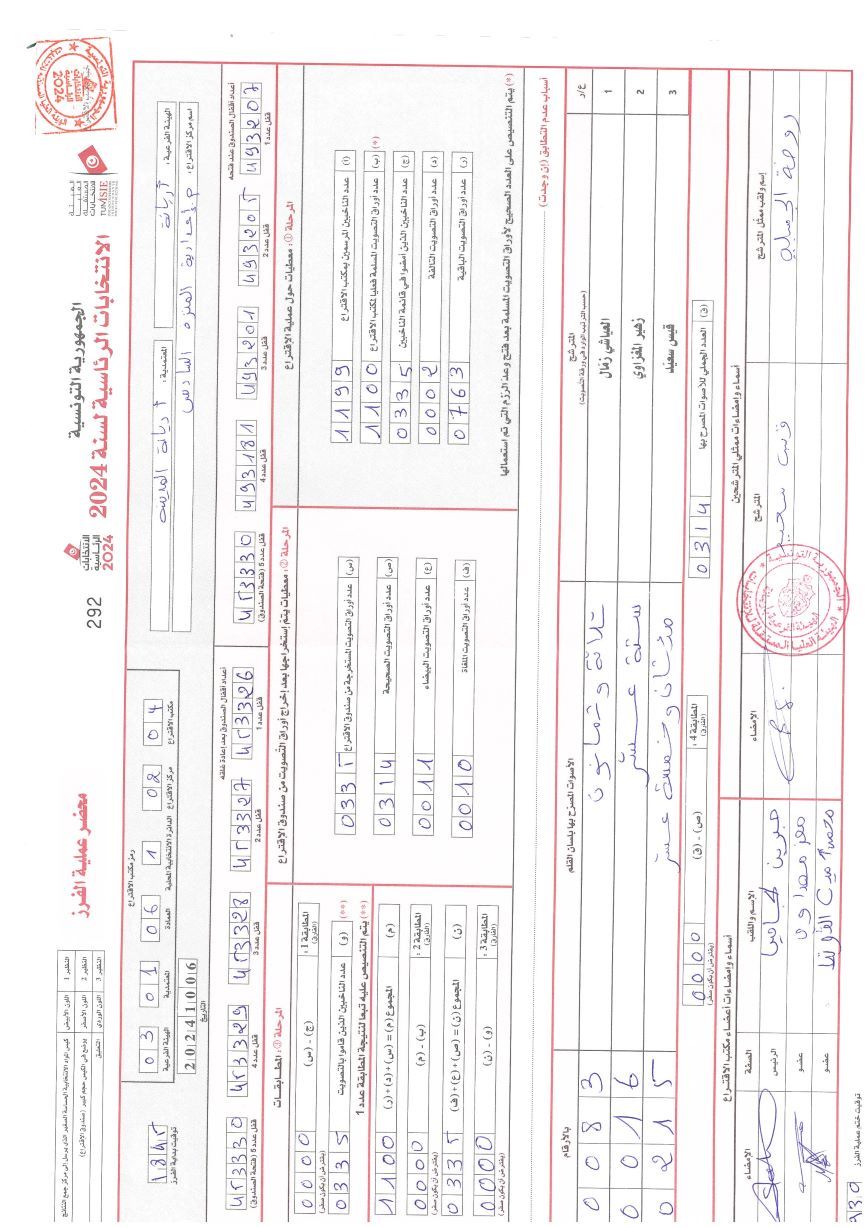 الجمهورية التونسية
الانتخابات الرئاسية لسنة 2024
الانتخابات
الرئاسية
2024
292
محضر عملية الفرز
TUNISIE
الهيئة الفرعية : أريانة
المعتمدية : أريانة المدينة
اسم مركز الاقتراع : إعدادية المنزه السادس
رمز مكتب الاقتراع
الهيئة الفرعية 03
المعتمدية 01
العمادة 06
الدائرة الانتخابية المحلية 1
مركز الاقتراع 02
مكتب الاقتراع 04
التاريخ 20241006
توقيت بداية الفرز 1845
النظير 1 اللون الأبيض
النظير 2 اللون الأصفر
النظير 3 اللون الوردي التعليق
أعداد أقفال الصندوق عند فتحه
قفل عدد 1 493207
قفل عدد 2 493205
قفل عدد 3 493201
قفل عدد 4 493181
قفل عدد 5 (فتحة الصندوق) 453330
أعداد أقفال الصندوق بعد إعادة غلقه
قفل عدد 1 453326
قفل عدد 2 453327
قفل عدد 3 453328
قفل عدد 4 453329
قفل عدد 5 (فتحة الصندوق) 453330
المرحلة ① : معطيات حول عملية الاقتراع
1199 (أ) عدد الناخبين المرسمين بمكتب الاقتراع
1100 (ب) عدد أوراق التصويت المسلمة فعليا لمكتب الاقتراع (*)
0335 (ج) عدد الناخبين الذين أمضوا في قائمة الناخبين
0002 (د) عدد أوراق التصويت التالفة
0763 (ر) عدد أوراق التصويت الباقية
(*) يتم التنصيص على العدد الصحيح لأوراق التصويت المسلمة بعد فتح وعد الرزم التي تم استعمالها
المرحلة ② : معطيات يتم إستخراجها بعد إخراج أوراق التصويت من صندوق الاقتراع
0335 (س) عدد أوراق التصويت المستخرجة من صندوق الاقتراع
0314 (ص) عدد أوراق التصويت الصحيحة
0011 (ع) عدد أوراق التصويت البيضاء
0010 (ف) عدد أوراق التصويت الملغاة
المرحلة ③ : المطابقات
المطابقة 1 : (الفارق) (ج) - (س) 0000 (يفترض أن يكون صفر)
(**) (و) عدد الناخبين الذين قاموا بالتصويت 0335
(**) يتم التنصيص عليه تبعا لنتيجة المطابقة عدد 1
(م) المجموع (م) = (س) + (د) + (ر) 1100
المطابقة 2 : (الفارق) (ب) - (م) 0000 (يفترض أن يكون صفر)
(ن) المجموع (ن) = (ص) + (ع) + (ف) 0335
المطابقة 3 : (الفارق) (و) - (ن) 0000
أسباب عدم التطابق (إن وجدت)
ع/ر المترشح الأصوات المصرّح بها بلسان القلم بالأرقام
(حسب الترتيب الوارد في ورقة التصويت)
1 العياشي زمال ثلاثة وثمانون 0083
2 زهير المغزاوي ستة عشر 0016
3 قيس سعيد مئتان وخمسة عشر 0215
(ق) العدد الجملي للأصوات المصرح بها 0314
المطابقة 4 : (الفارق) (ص) - (ق) 0000 (يفترض أن يكون صفر)
أسماء وإمضاءات ممثلي المترشحين
إسم ولقب ممثل المترشح المترشح الإمضاء
قيس سعيد
أسماء وإمضاءات أعضاء مكتب الاقتراع
الإسم واللقب الصفة الإمضاء
الرئيس
عضو
عضو
توقيت ختم عملية الفرز